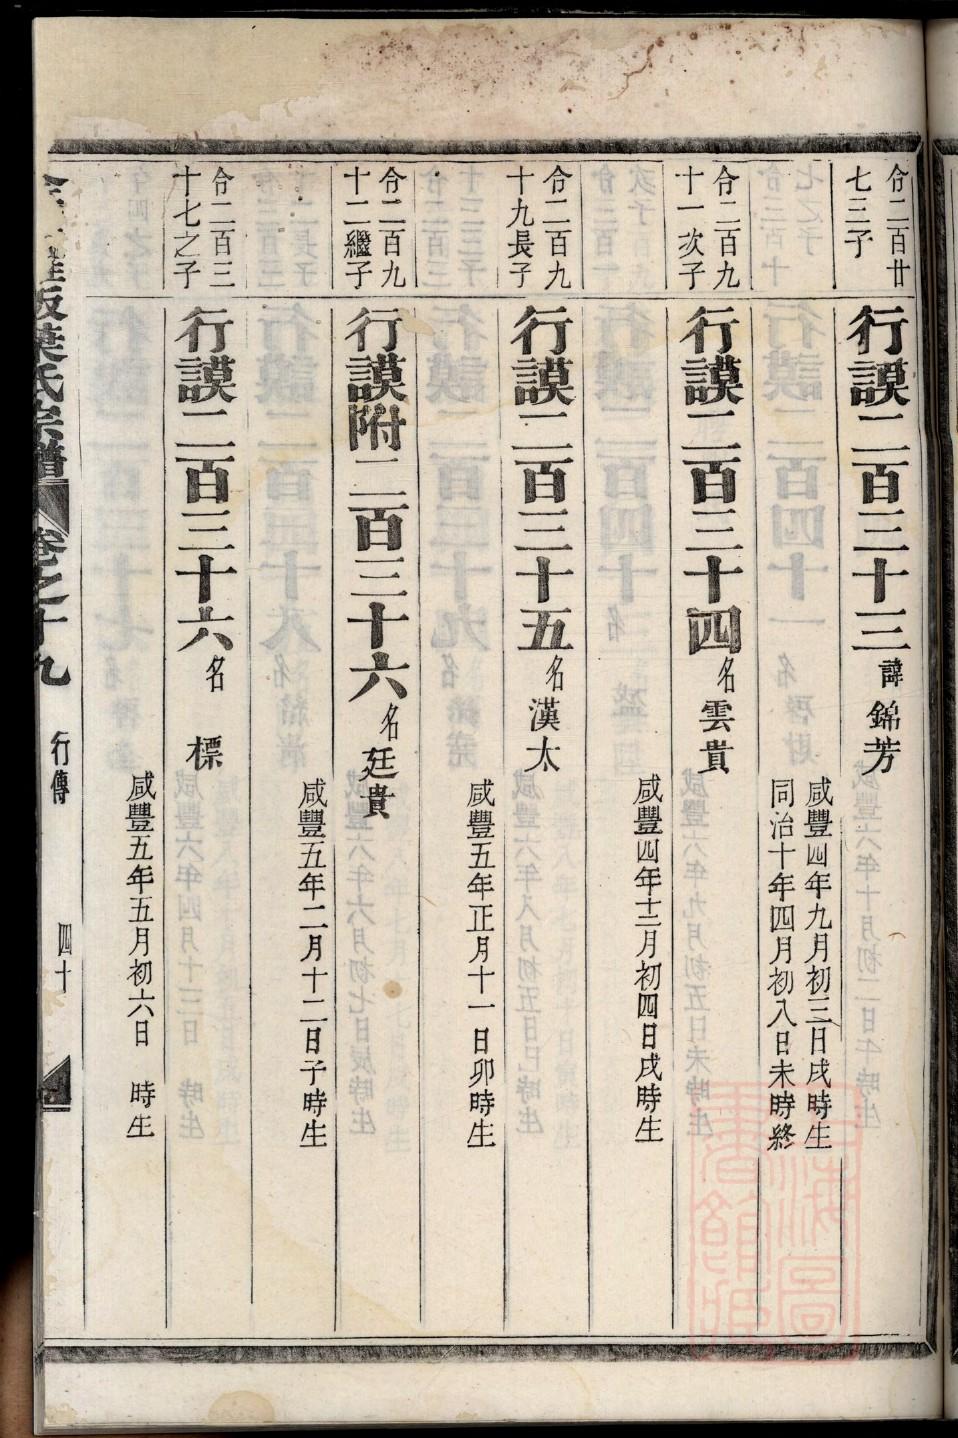 令二百廿
七三子
行謨二百三十三
諱錦芳
咸豐四年九月初三日戌時生
同治十年四月初八日未時終
令二百九
十一次子
行謨二百三十四
名雲貴
咸豐四年十二月初四日戌時生
令二百九
十九長子
行謨二百三十五
名漢太
咸豐五年正月十一日卯時生
令二百九
十二繼子
行謨附二百三十六
名廷貴
咸豐五年二月十二日子時生
令二百三
十七之子
行謨二百三十六
名標
咸豐五年五月初六日 時生
葉氏宗譜
卷之十九
行傳
四十
上海圖
書館藏